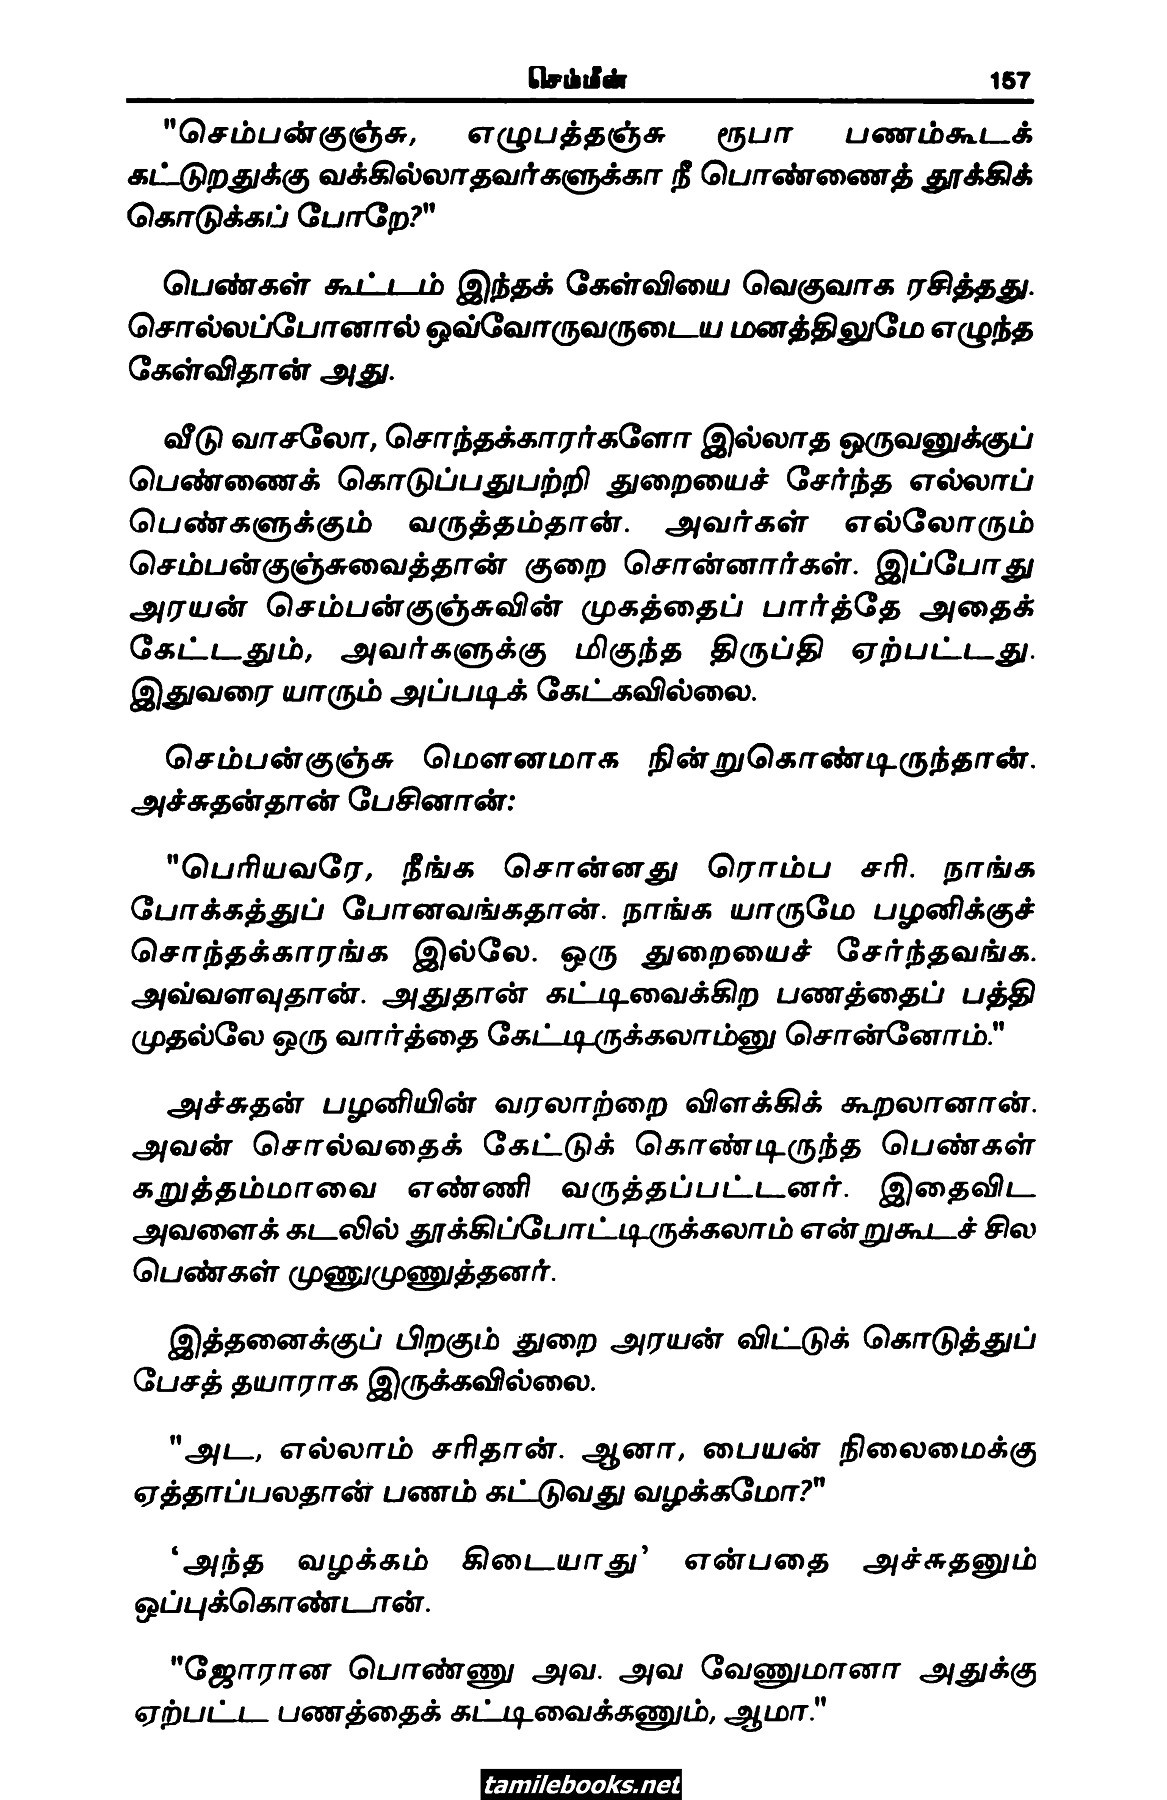 செம்மீன் 157
"செம்பன்குஞ்சு, எழுபத்தஞ்சு ரூபா பணம்கூடக்
கட்டுறதுக்கு வக்கில்லாதவர்களுக்கா நீ பொண்ணைத் தூக்கிக்
கொடுக்கப் போறே?"
பெண்கள் கூட்டம் இந்தக் கேள்வியை வெகுவாக ரசித்தது.
சொல்லப்போனால் ஒவ்வோருவருடைய மனத்திலுமே எழுந்த
கேள்விதான் அது.
வீடு வாசலோ, சொந்தக்காரர்களோ இல்லாத ஒருவனுக்குப்
பெண்ணைக் கொடுப்பதுபற்றி துறையைச் சேர்ந்த எல்லாப்
பெண்களுக்கும் வருத்தம்தான். அவர்கள் எல்லோரும்
செம்பன்குஞ்சுவைத்தான் குறை சொன்னார்கள். இப்போது
அரயன் செம்பன்குஞ்சுவின் முகத்தைப் பார்த்தே அதைக்
கேட்டதும், அவர்களுக்கு மிகுந்த திருப்தி ஏற்பட்டது.
இதுவரை யாரும் அப்படிக் கேட்கவில்லை.
செம்பன்குஞ்சு மௌனமாக நின்றுகொண்டிருந்தான்.
அச்சுதன்தான் பேசினான்:
"பெரியவரே, நீங்க சொன்னது ரொம்ப சரி. நாங்க
போக்கத்துப் போனவங்கதான். நாங்க யாருமே பழனிக்குச்
சொந்தக்காரங்க இல்லே. ஒரு துறையைச் சேர்ந்தவங்க.
அவ்வளவுதான். அதுதான் கட்டிவைக்கிற பணத்தைப் பத்தி
முதல்லே ஒரு வார்த்தை கேட்டிருக்கலாம்னு சொன்னோம்."
அச்சுதன் பழனியின் வரலாற்றை விளக்கிக் கூறலானான்.
அவன் சொல்வதைக் கேட்டுக் கொண்டிருந்த பெண்கள்
கறுத்தம்மாவை எண்ணி வருத்தப்பட்டனர். இதைவிட
அவளைக் கடலில் தூக்கிப்போட்டிருக்கலாம் என்றுகூடச் சில
பெண்கள் முணுமுணுத்தனர்.
இத்தனைக்குப் பிறகும் துறை அரயன் விட்டுக் கொடுத்துப்
பேசத் தயாராக இருக்கவில்லை.
"அட, எல்லாம் சரிதான். ஆனா, பையன் நிலைமைக்கு
ஏத்தாப்பலதான் பணம் கட்டுவது வழக்கமோ?"
‘அந்த வழக்கம் கிடையாது’ என்பதை அச்சுதனும்
ஒப்புக்கொண்டான்.
"ஜோரான பொண்ணு அவ. அவ வேணுமானா அதுக்கு
ஏற்பட்ட பணத்தைக் கட்டிவைக்கணும், ஆமா."
tamilebooks.net